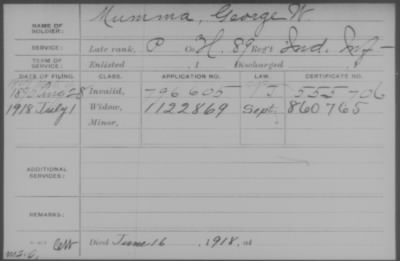 NAME OF SOLDIER: Mumma, George W.
SERVICE: Late rank, P Co. H, 89 Reg't Ind. Inf
TERM OF SERVICE: Enlisted , 1 Discharged , 1
DATE OF FILING. CLASS. APPLICATION NO. LAW. CERTIFICATE NO.
Invalid, 796605 555706
1918 July 1 Widow, 1122869 Sept. 860765
Minor,
ADDITIONAL SERVICES:
REMARKS:
Died June 16, 1918, at